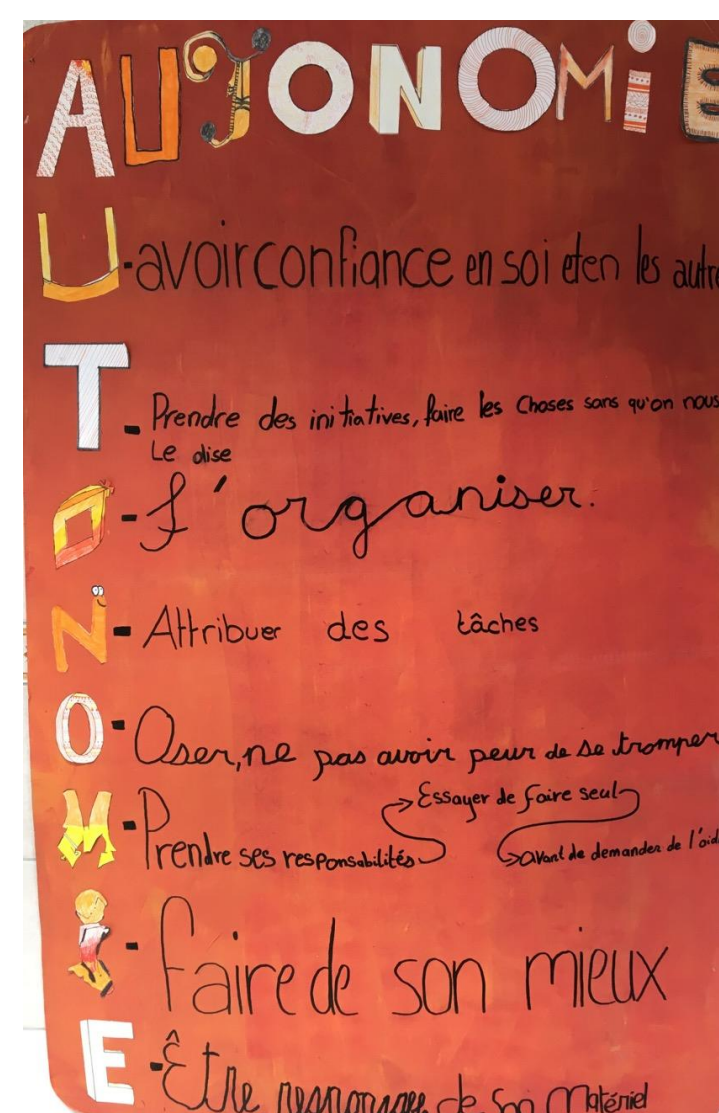 AUTONOMiE
U - avoir confiance en soi et en les autre
T - Prendre des initiatives, faire les Choses sans qu'on nous
Le dise
O - S'organiser.
N - Attribuer des tâches
O - Oser, ne pas avoir peur de se tromper
Essayer de faire seul
M - Prendre ses responsabilités
avant de demander de l'aid
i - faire de son mieux
E - Être de son Matériel